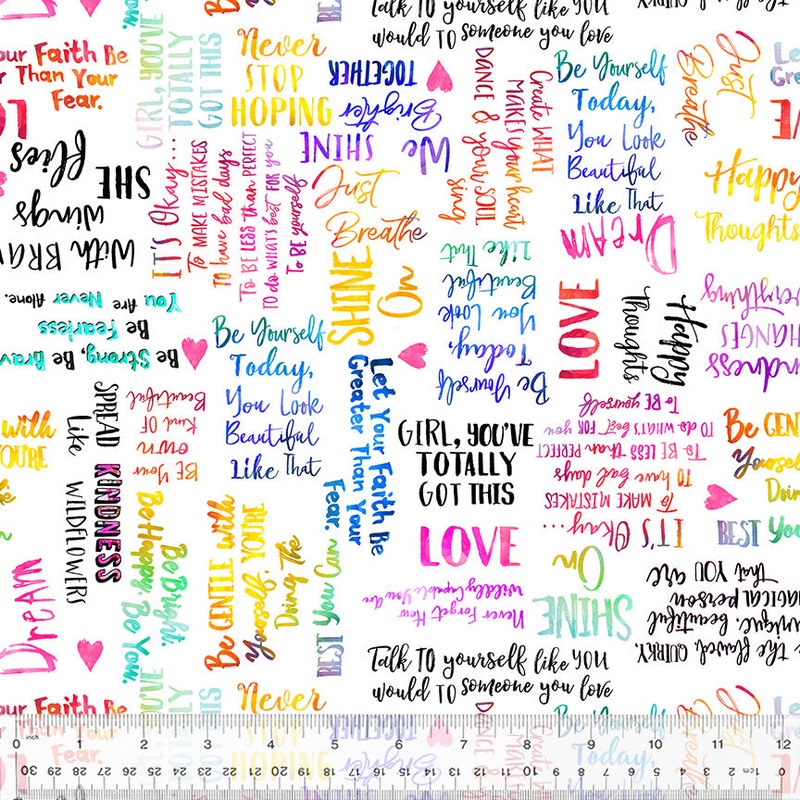 now.
Talk TO yourself like YOU
would TO someone you love
QUIRKY,
the
our Faith Be
r Than Your
Fear.
GIRL, YOU'VE
TOTALLY
GOT THIS
Never
STOP
HOPING
We SHINE
Brighter
TOGETHER
Create WHAT
MAKES your heart
sing
DANCE & your SOUL
Be Yourself
Today,
You Look
Beautiful
Like That
Just
Breathe
Le
Grea
LOVE
SHE
flies
With BRAV
wings
IT'S Okay...
To MAKE MISTAKES
To have bad days
To BE LESS than PERFECT
TO do WHAT'S best FOR you
To BE yourself
Just
Breathe
Dream
Happy
Thoughts
Be Strong, Be Brave
Be Fearless
You Are Never Alone.
SHINE
On
Be Yourself
Today,
You Look
Beautiful
Like That
LOVE
Happy
Thoughts
Kindness
CHANGES
Everything
Be Yourself
Today,
You Look
Beautiful
Like That
Let Your Faith Be
Greater Than Your
Fear.
with
YOU'RE
the
SPREAD KINDNESS
Like WILDFLOWERS
BE Your
own
Kind OF
Beautiful
GIRL, YOU'VE
TOTALLY
GOT THIS
IT'S Okay...
To MAKE MISTAKES
To have bad days
To BE LESS than PERFECT
TO do WHAT'S best FOR you
To BE yourself
Be GEN
Yoursel
Doin
BEST You
Dream
Be Bright.
Be Happy. Be You.
Be GENTLE with
Yourself, YOU'RE
Doing The
BEST You Can
LOVE
Never Forget How
Wildly Capable You Are
SHINE
On
Be the flawed, QUIRKY,
unique, beautiful
MAGICAL person
That YOU are
Talk TO yourself like YOU
would TO someone you love
our Faith Be
r Than Your
Fear.
YOU'VE
TOTALLY
GOT THIS
Never
STOP
HOPING
Brighter
TOGETHER
Create
MAKES
DANCE &
Be Yourself
Today,
You Look
Beautiful
Just
Breathe
Le
Grea
0 inch 1 2 3 4 5 6 7 8 9 10 11 12
30 29 28 27 26 25 24 23 22 21 20 19 18 17 16 15 14 13 12 11 10 9 8 7 6 5 4 3 2 1 0